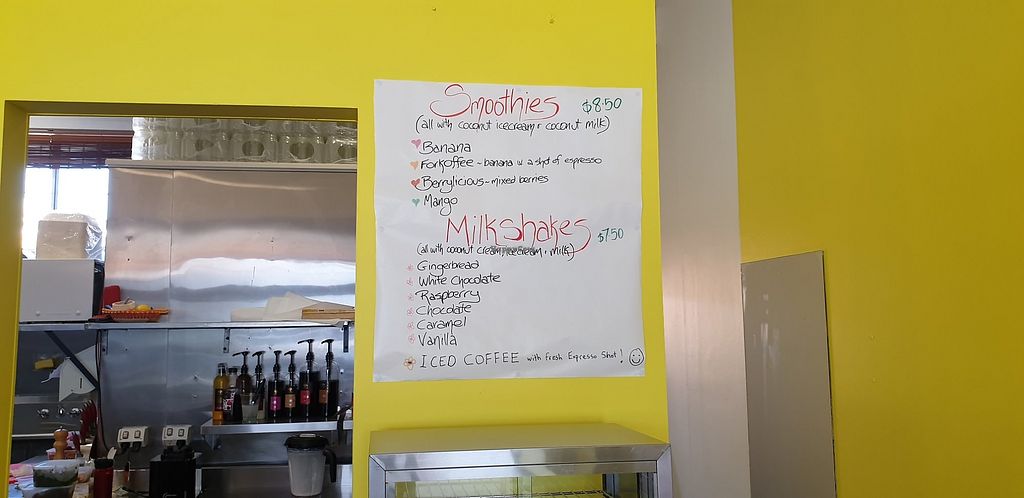 Smoothies $8.50
(all with coconut icecream + coconut milk)
Banana
Forkoffee ~ banana w a shot of espresso
Berrylicious ~ mixed berries
Mango
Milkshakes $7.50
(all with coconut cream, icecream + milk)
Gingerbread
White Chocolate
Raspberry
Chocolate
Caramel
Vanilla
ICED COFFEE with Fresh Espresso Shot!